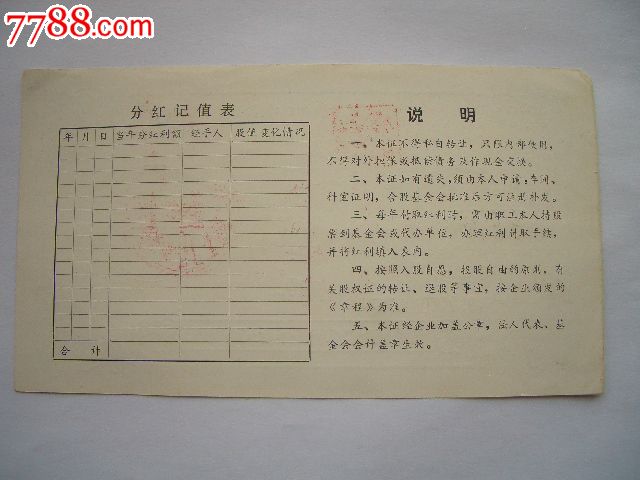 7788.com
分红记值表
年 月 日 当年分红利额 经手人 股值变化情况
合计
说明
一、本证不得私自转让，只限内部使用，
不得对外担保或抵偿债务及作现金交换。
二、本证如有遗失，须由本人申请，车间、
科室证明，合股基金会批准后方可注册补发。
三、每年付取红利时，需由职工本人持股
票到基金会或代办单位，办理红利付取手续，
并将红利填入表内。
四、按照入股自愿，投股自由的原则，有
关股权证的转让、退股等事宜，按企业颁发的
《章程》为准。
五、本证经企业加盖公章，法人代表、基
金会会计盖章生效。